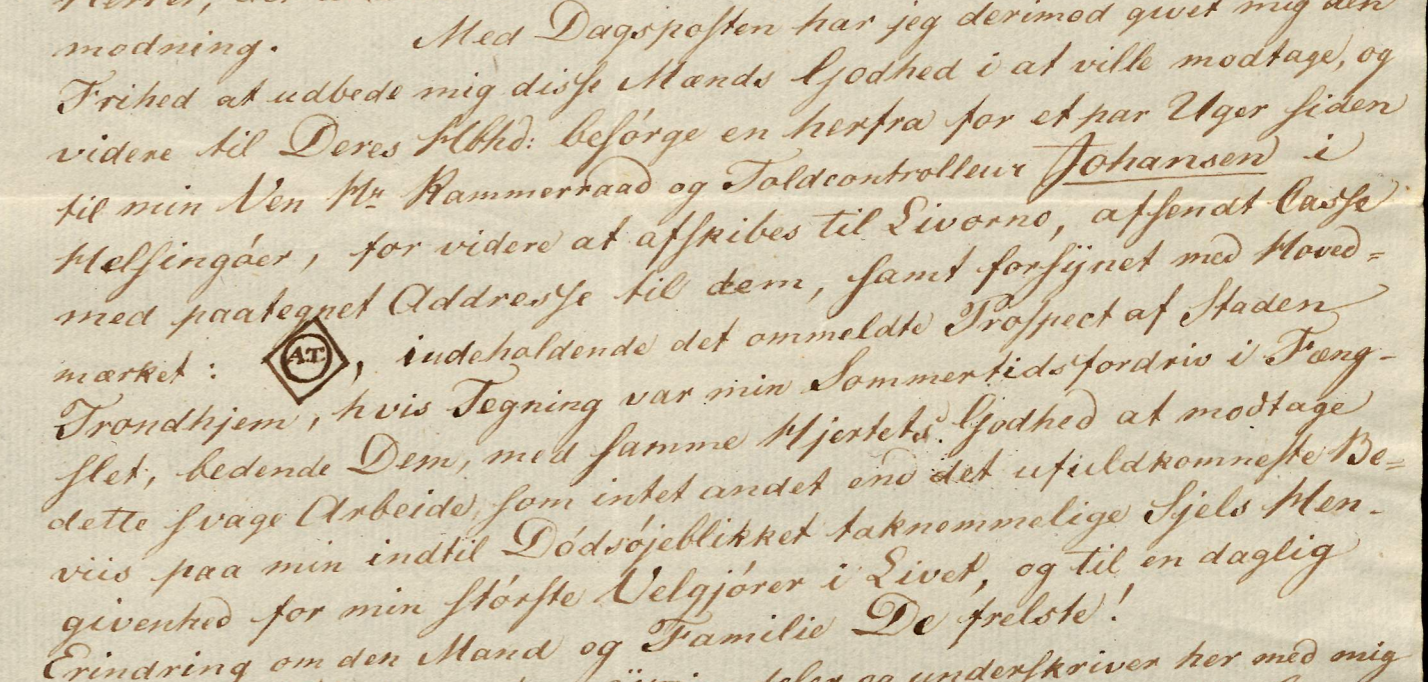 modning. Med Dagsposten har jeg derimod givet mig den
Frihed at udbede mig disse Mænds Godhed i at ville modtage, og
videre til Deres Hbhd: besørge en herfra for et par Uger siden
til min Ven Hr Kammerraad og Toldcontrolleur Johansen i
Helsingøer, for videre at afskibes til Livorno, afsendt Casse
med paategnet Addresse til dem, samt forsijnet med Hoved=
mærket: A.T. , indeholdende det ommeldte Prospect af Staden
Trondhjem, hvis Tegning var min Sommertidsfordriv i Fæng-
slet, bedende Dem, med samme Hjertets Godhed at modtage
dette svage Arbeide, som intet andet end det ufuldkomneste Be=
viis paa min indtil Dødsøjeblikket taknemmelige Sjels Hen-
givenhed for min største Velgjører i Livet, og til en daglig
Erindring om den Mand og Familie De frelste!
og underskriver her med mig